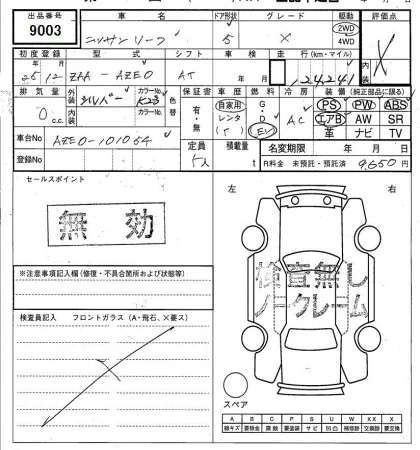 出品番号 車名 ドア形状 グレード 駆動 評価点
9003 ニッサン リーフ 5 X 2WD 4WD X
内装
初度登録 型式 シフト 車検 走行(km・マイル)
年 月 年 月
25.12 ZAA-AZEO AT 124241
排気量 外装 カラーNo. 色替 保証書 車歴 燃料 冷房 装備(純正部品に限る)
0 c.c. シルバー K23 有・無 自家用 レンタ G・D EV AC PS PW ABS
内装 カラーNo. エアB AW SR
革 ナビ TV
車台No. AZEO-101054 定員 積載量 名変期限 年 月 日
登録No. 5人 t R料金 未預託・預託済 9,650円
セールスポイント
無効
左 右
※注意事項記入欄(修復・不具合箇所および状態等)
検査無し
ノークレーム
検査員記入 フロントガラス(A・飛石、X要ス)
スペア
A B C P S U W X XX
線キズ 要板金 腐蝕 要塗装 サビ 凹凸 補修跡 要交換 交換済